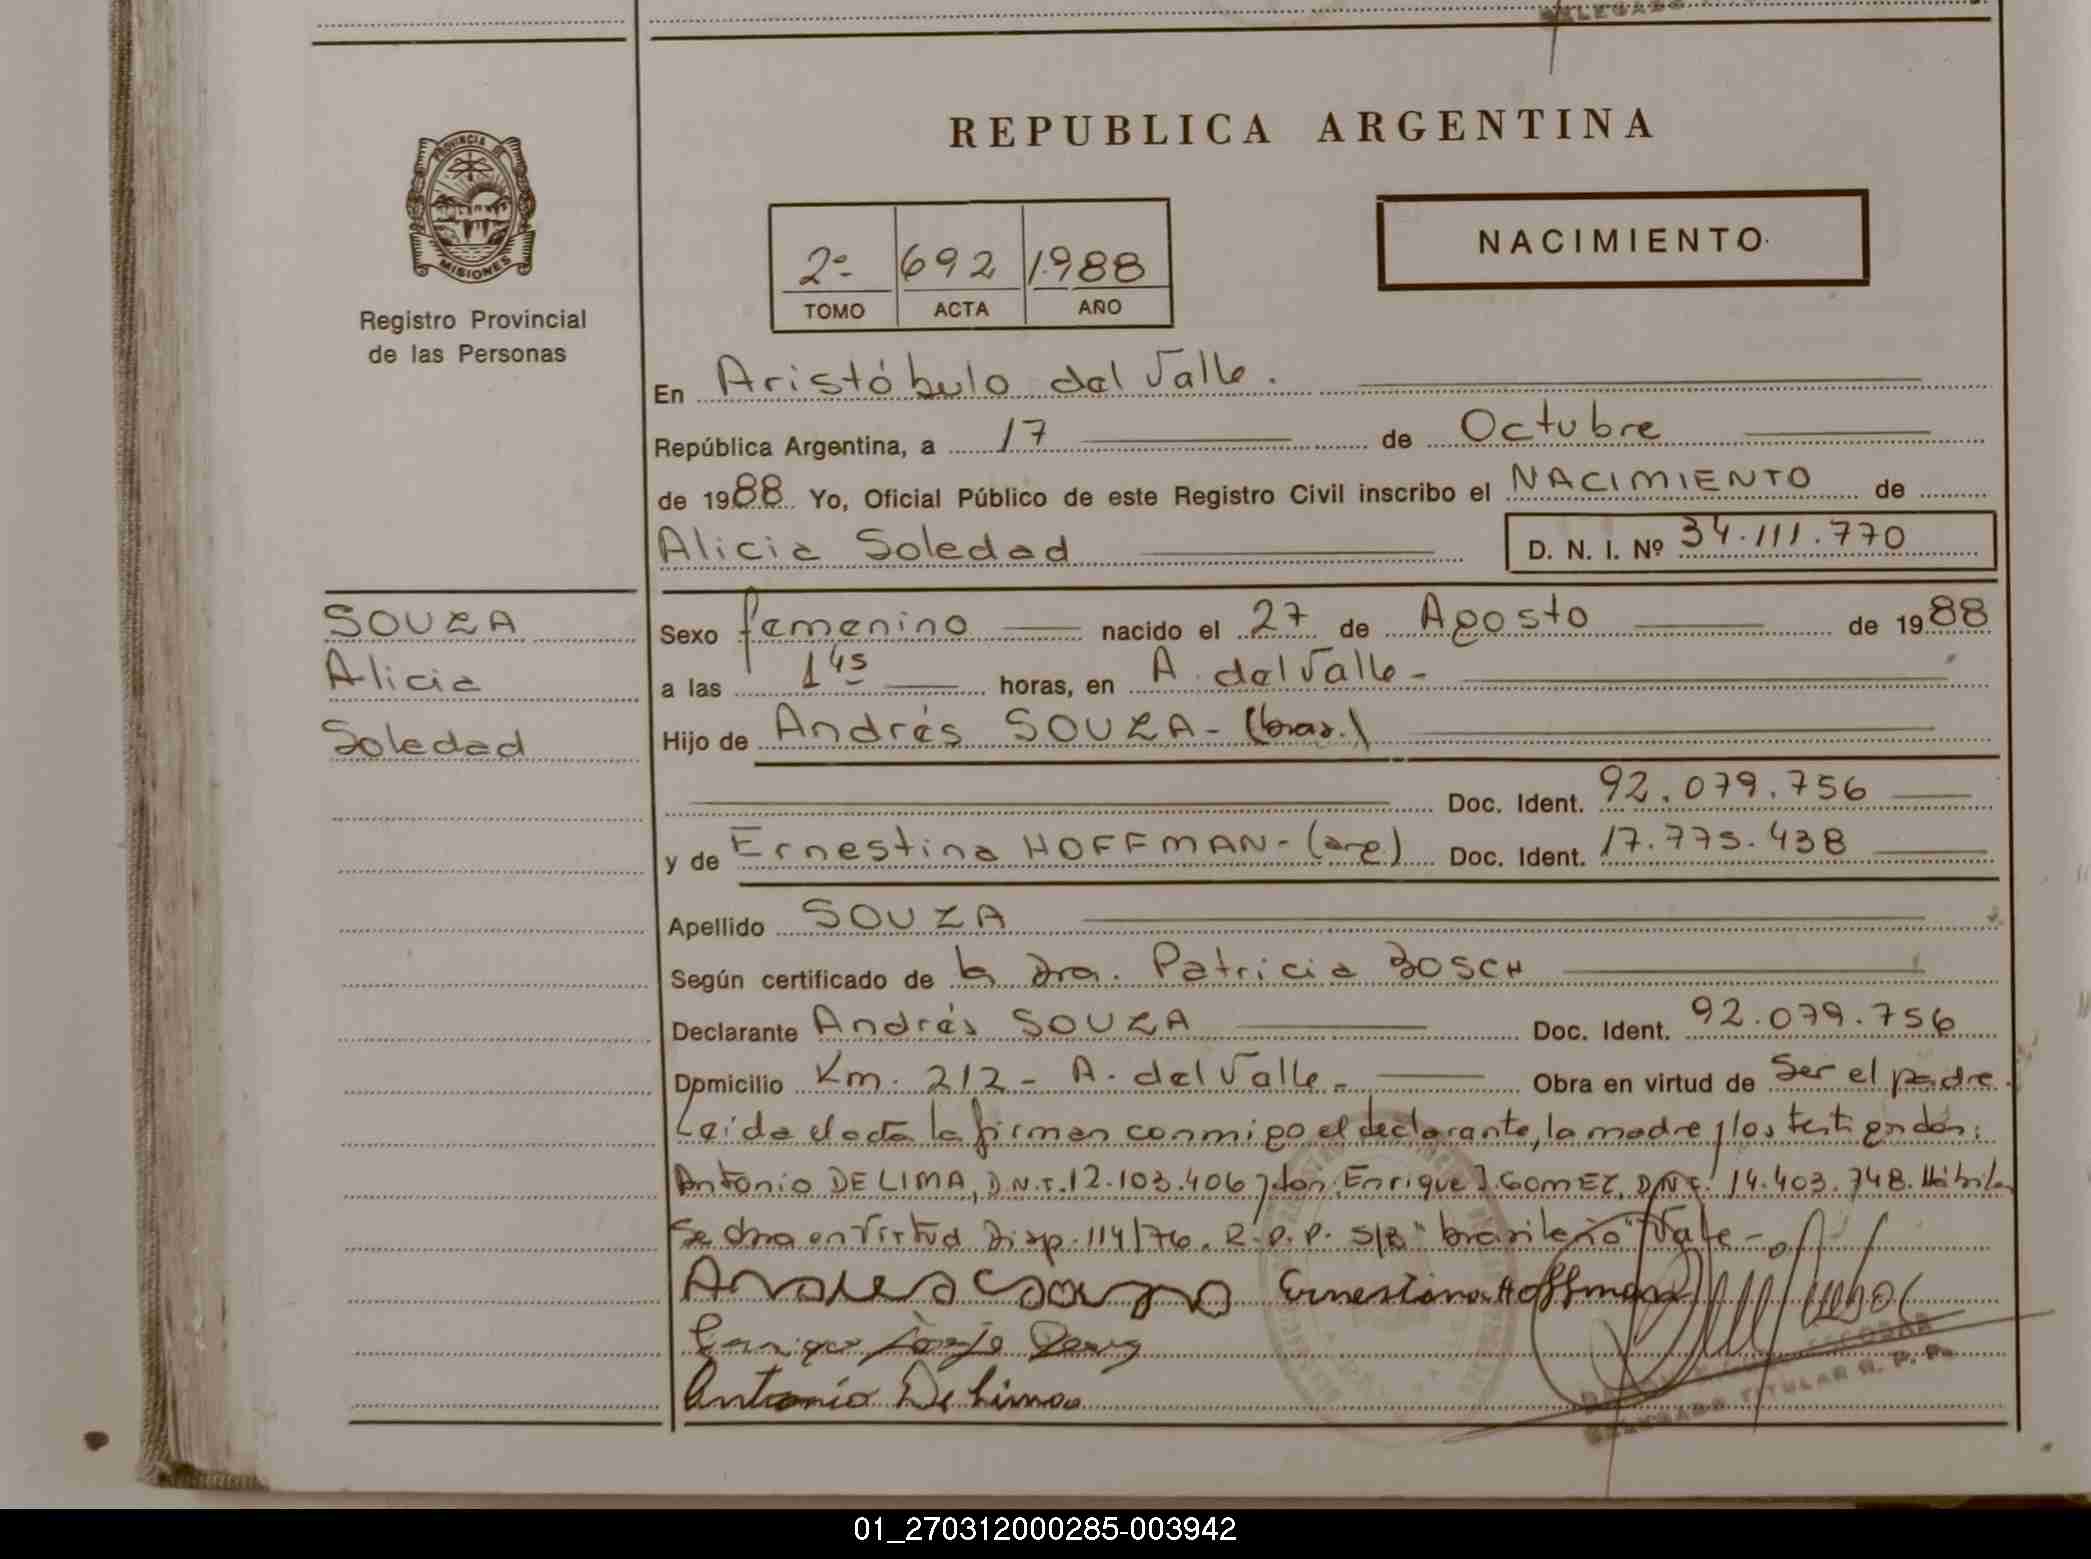 REPUBLICA ARGENTINA
PROVINCIA DE
MISIONES
Registro Provincial
de las Personas
2º 692 1988
TOMO ACTA AÑO
NACIMIENTO
En Aristóbulo del Valle.
República Argentina, a 17 de Octubre
de 1988 Yo, Oficial Público de este Registro Civil inscribo el NACIMIENTO de
Alicia Soledad D. N. I. Nº 34.111.770
SOUZA
Alicia
Soledad
Sexo femenino nacido el 27 de Agosto de 1988
a las 1 45 horas, en A. del Valle-
Hijo de Andrés SOUZA- (bras.)
Doc. Ident. 92.079.756
y de Ernestina HOFFMAN- (arg) Doc. Ident. 17.775.438
Apellido SOUZA
Según certificado de la Dra. Patricia BOSCH
Declarante Andrés SOUZA Doc. Ident. 92.079.756
Domicilio Km. 212- A. del Valle- Obra en virtud de Ser el padre.
Leida el acta la firman conmigo el declarante, la madre y los testigos don:
Antonio DE LIMA, D.N.I. 12.103.406 y don Enrique J. GOMEZ, D.N.I. 14.403.748. Hábiles
Se en virtud Disp. 114/76. R.P.P. S/B "brasileño" Vale-
Ernestina Hoffman
Enrique
Antonio De Lima
ESCOBAR
DELEGADO TITULAR R. P. P.
01_270312000285-003942